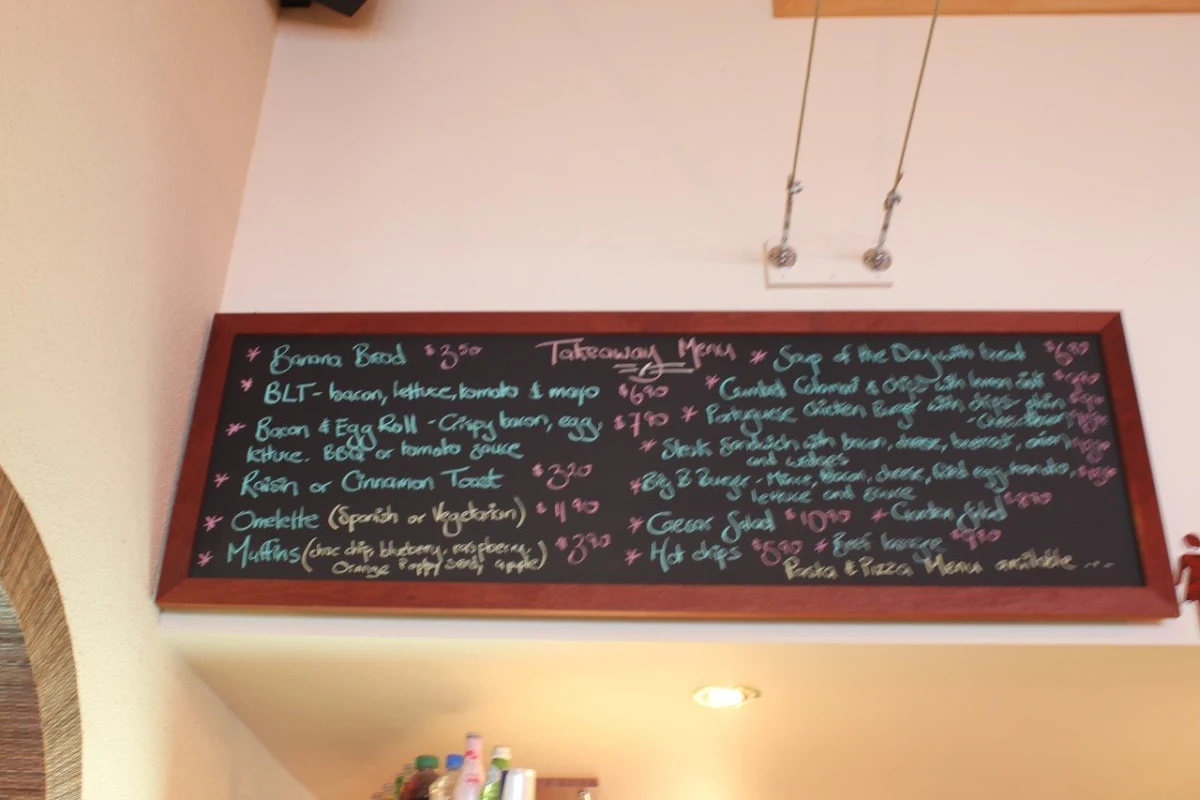 Takeaway Menu
* Banana Bread $3.50
* BLT - bacon, lettuce, tomato & mayo $6.90
* Bacon & Egg Roll - Crispy bacon, egg, $7.90
lettuce. BBQ or tomato sauce
* Raisin or Cinnamon Toast $3.20
* Omelette (Spanish or Vegetarian) $11.90
* Muffins (choc chip, blueberry, raspberry, $3.90
Orange Poppy seed, apple)
* Soup of the Day with bread $6.90
* Crumbed Calamari & chips with lemon
* Portuguese Chicken Burger with chips
* Steak Sandwich with bacon, cheese, beetroot, onion
and wedges
* Big B Burger - Mince, bacon, cheese, fried egg, tomato,
lettuce and sauce
* Caesar Salad $10.90 * Garden Salad $8.90
* Hot chips $5.90 * Beef lasagne $9.90
Pasta & Pizza Menu available ...